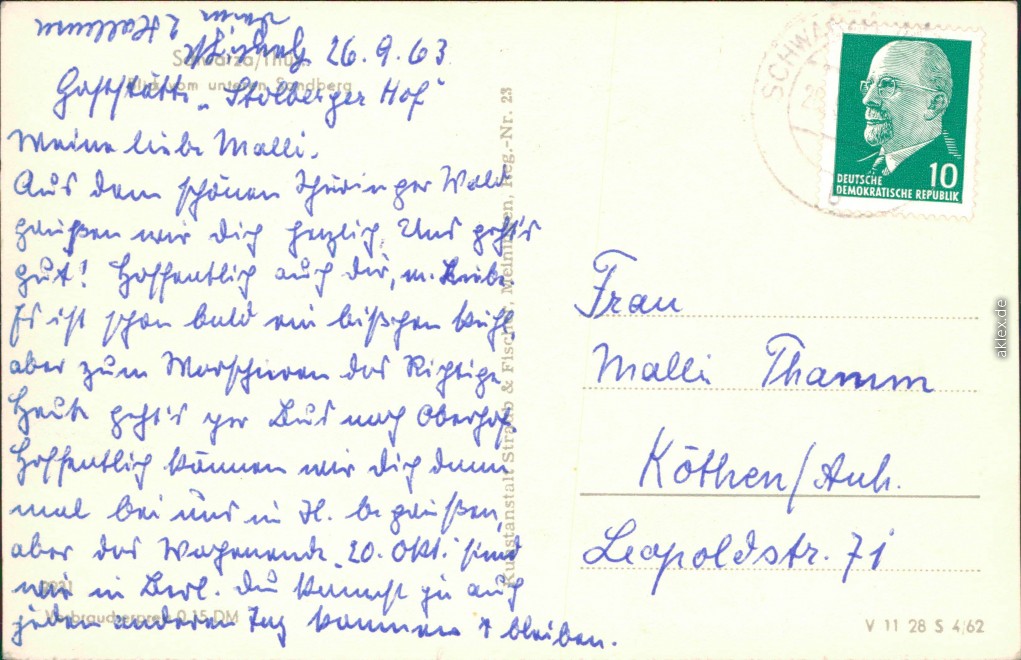 26.9.63
Schwarza/Thür.
Blick vom unteren Sandberg
Gaststätte „Stolberger Hof"
Meine liebe Malli.
Aus dem schönen Thüringer Wald
grüßen wir Dich herzlich. Uns geht's
gut! Hoffentlich auch Dir, m. Liebe
Es ist schon bald ein bißchen kühl,
aber zum Marschieren das Richtige.
Heute geht's per Bus nach Oberhof.
Hoffentlich können wir Dich dann
mal bei uns in H. begrüßen,
aber das Wochenende 20. Okt. sind
wir in Berl. Du kannst ja auch
jeden anderen Tag kommen + bleiben.
Verbraucherpreis 0,15 DM
Kunstanstalt Straub & Fischer, Meiningen, Reg.-Nr. 23
SCHWARZA
DEUTSCHE
DEMOKRATISCHE REPUBLIK
10
Frau
Malli Thamm
Köthen/Anh.
Leopoldstr. 71
V 11 28 S 4/62
aklex.de